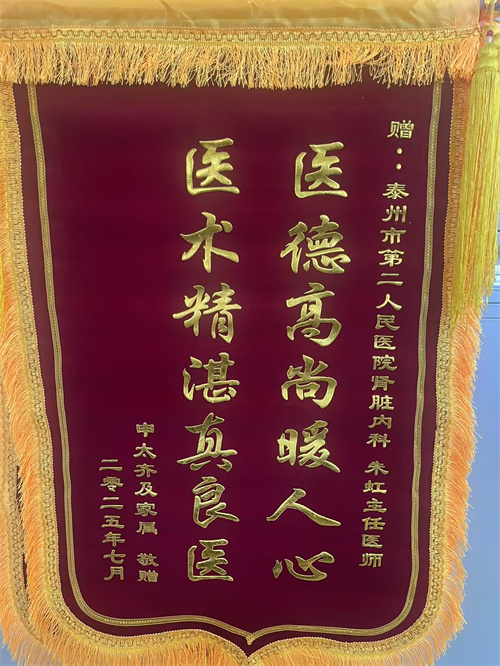 赠：泰州市第二人民医院肾脏内科 朱虹主任医师
医德高尚暖人心
医术精湛真良医
申太齐及家属 敬赠
二零二五年七月